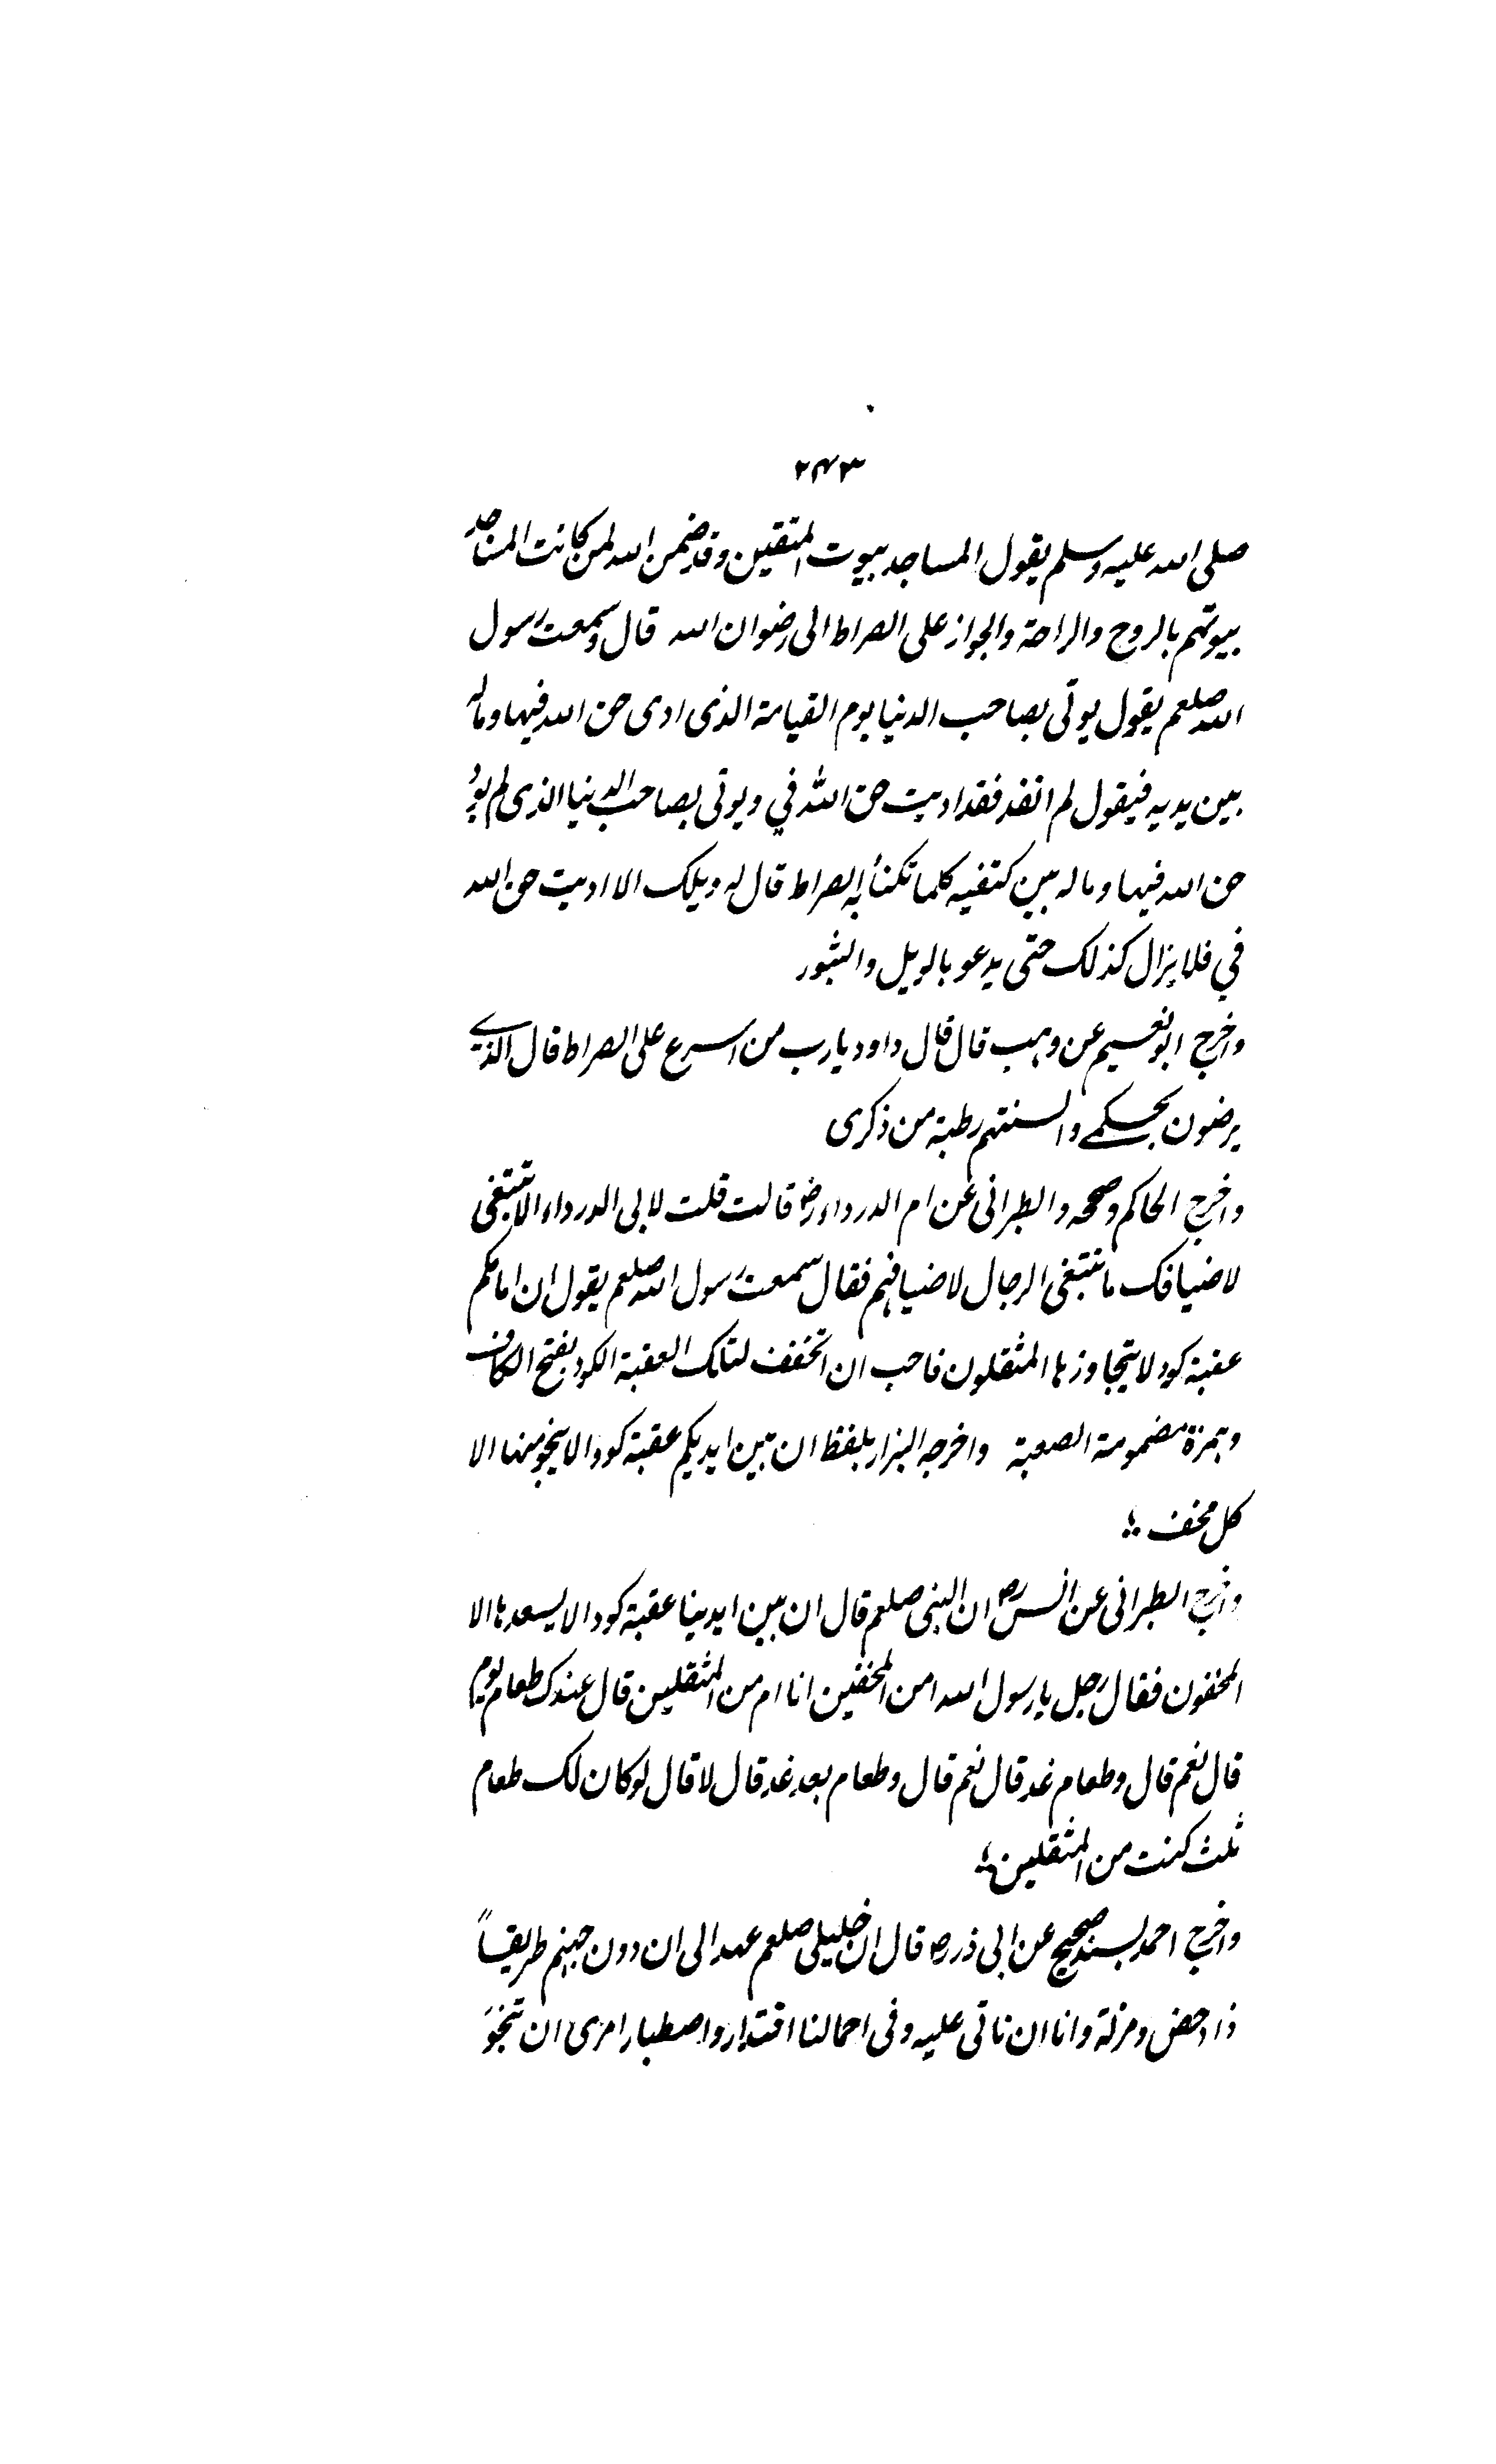 ۲۴۳
صلی الله علیه وسلم یقول المساجد بیوت المتقین وقد ضمن الله لمن کانت المساجد
بیوتهم بالروح والراحة والجواز علی الصراط الی رضوان الله قال وسمعت رسول
الله صلعم یقول یوتی بصاحب الدنیا یوم القیامة الذی ادی حق الله فیها وماله
بین یدیه فیقول لم انفد فقد ادیت حق الله في ویوتی بصاحب الدنیا الذی لم یؤد
حق الله فیها وماله بین کتفیه کلما تکفأ به الصراط قال له ویلک الا ادیت حق الله
في فلا یزال کذلک حتی یدعو بالویل والثبور
واخرج ابونعیم عن وهب قال قال داود یارب من اسرع علی الصراط قال الذین
یرضون بحکمے والسنتهم رطبة من ذکری
واخرج الحاکم وصححه والطبرانی عن ام الدرداء رض قالت قلت لابی الدرداء الا تبتغی
لاضیافک ما تبتغی الرجال لاضیافهم فقال سمعت رسول الله صلعم یقول ان امامکم
عقبة کود لا یتجاوزها المثقلون فاحب ان اتخفف لتلک العقبة الکود بفتح الکاف
وهمزة مضمومة الصعبة واخرجه البزار بلفظ ان بین ایدیکم عقبة کودا لا ینجو منها الا
کل مخف ؛
واخرج الطبرانی عن انس رض ان النبی صلعم قال ان بین ایدینا عقبة کودا لا یسعدها الا
المخفون فقال رجل یا رسول الله امن المخفین انا ام من المثقلین قال عندک طعام یوم
قال نعم قال وطعام غد قال نعم قال وطعام بعد غد قال لا قال لو کان لک طعام
ثلث کنت من المثقلین ؛
واخرج احمد بسند صحیح عن ابی ذر رض قال ان خلیلی صلعم عهد الی ان دون جهنم طریقاً
ذا دحض ومزلة وانا ان ناتی علیه وفی احمالنا اقتدار واصطبار امری ان ننجو